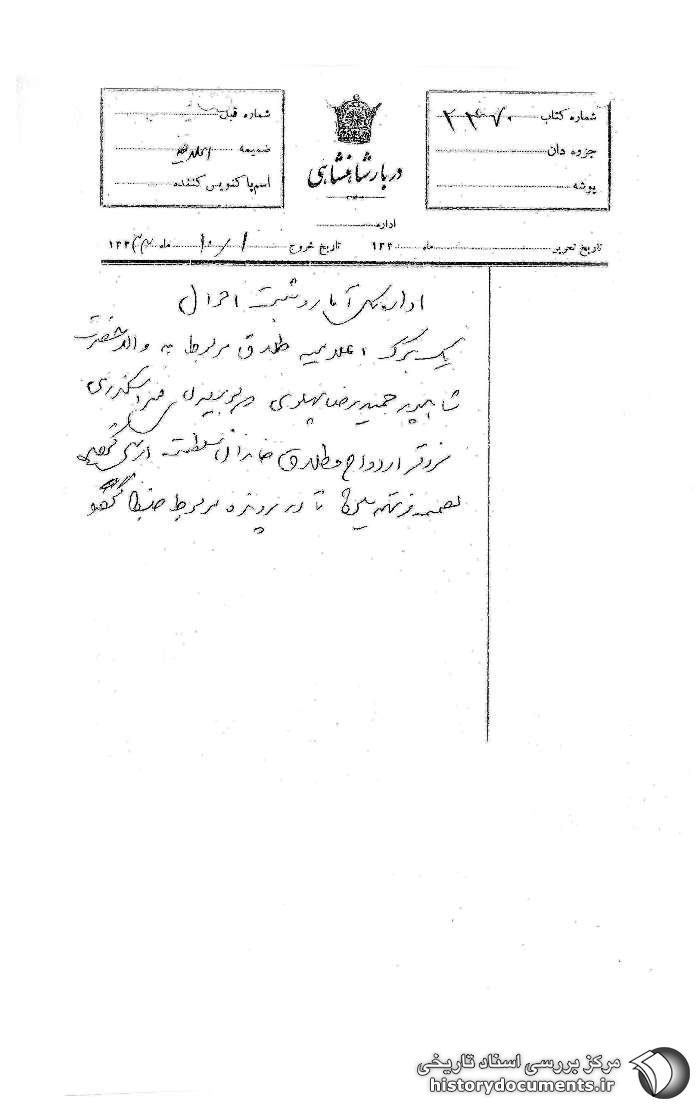 شماره کتاب ۲۲۴۷۰
جزوه دان
پوشه
دربار شاهنشاهی
شماره قبل
ضمیمه
اسم پاکنویس کننده
اداره
تاریخ تحریر ماه ۱۳۲ تاریخ خروج ۱۰/۱ ماه ۱۳۳
اداره کل آمار و ثبت احوال
یک برگ اعلامیه طلاق مربوط به والاحضرت
شاهپور حمیدرضا پهلوی
دفتر ازدواج و طلاق خاندان سلطنت
تا در پرونده مربوط ضبط
مرکز بررسی اسناد تاریخی
historydocuments.ir